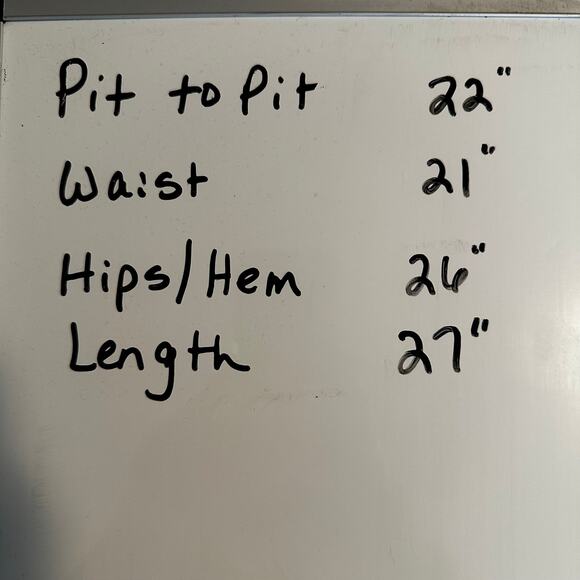 Pit to Pit 22"
Waist 21"
Hips/Hem 26"
Length 27"